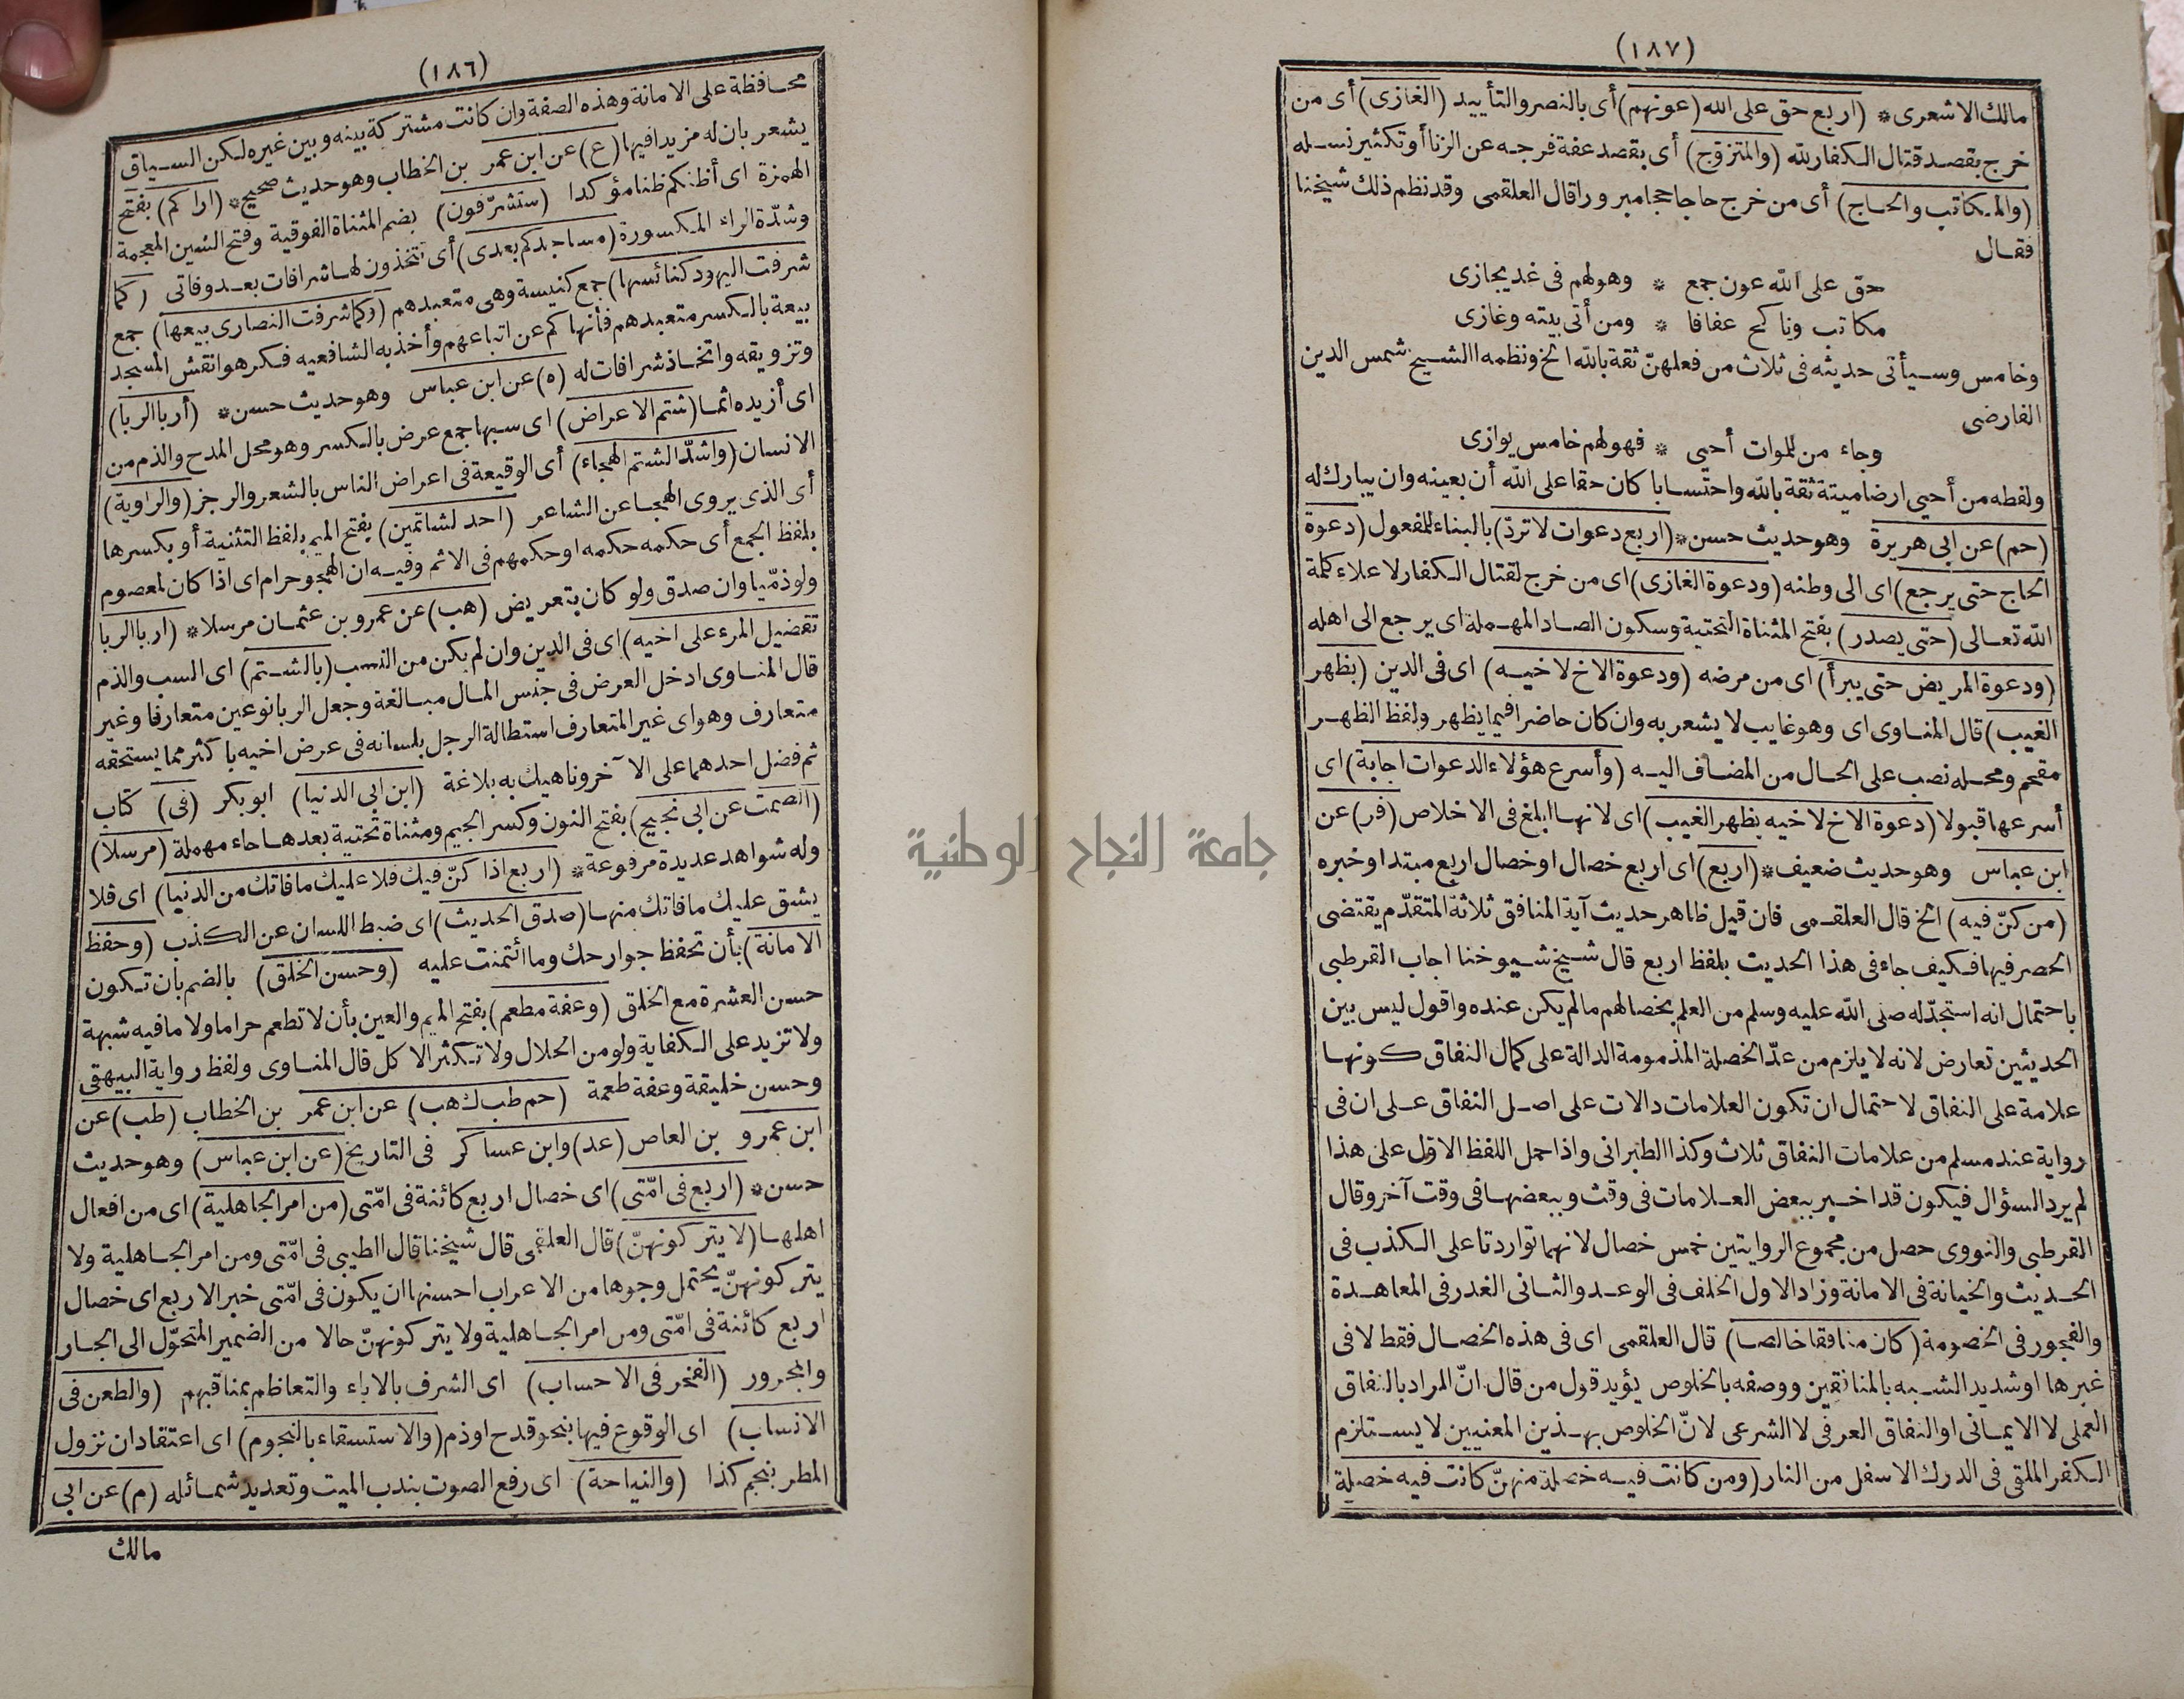 (١٨٦)
محافظة على الامانة وهذه الصفة وان كانت مشتركة بينه وبين غيره لكن السياق
يشعر بان له مزيدا فيها (ع) عن ابن عمر بن الخطاب وهو حديث صحيح * (اراكم) بفتح
الهمزة اى أظنكم ظنا مؤكدا (ستشرّفون) بضم المثناة الفوقية وفتح الشين المعجمة
وشدّة الراء المكسورة (مساجدكم بعدى) أى تتخذون لها شرافات بعد وفاتى (كما
شرفت اليهود كنائسها) جمع كنيسة وهى متعبدهم (وكما شرفت النصارى بيعها) جمع
بيعة بالكسر متعبدهم فأنهاكم عن اتباعهم وأخذ به الشافعيه فكرهوا نقش المسجد
وتزويقه واتخاذ شرافات له (ه) عن ابن عباس وهو حديث حسن * (أربا الربا)
اى أزيده اثما (شتم الاعراض) اى سبها جمع عرض بالكسر وهو محل المدح والذم من
الانسان (واشدّ الشتم الهجاء) أى الوقيعة فى اعراض الناس بالشعر والرجز (والراوية)
أى الذى يروى الهجا عن الشاعر (احد لشاتمين) بفتح الميم بلفظ التثنية أو بكسرها
بلفظ الجمع أى حكمه حكمه او حكمهم فى الاثم وفيه ان الهجو حرام اى اذا كان لمعصوم
ولو ذمّيا وان صدق ولو كان بتعريض (هب) عن عمرو بن عثمان مرسلا * (اربا الربا
تفضيل المرء على اخيه) اى فى الدين وان لم يكن من النسب (بالشتم) اى السب والذم
قال المناوى ادخل العرض فى جنس المال مبالغة وجعل الربا نوعين متعارفا وغير
متعارف وهو اى غير المتعارف استطالة الرجل بلسانه فى عرض اخيه باكثر مما يستحقه
ثم فضل احدهما على الآخر وناهيك به بلاغة (ابن ابى الدنيا) ابو بكر (فى) كتاب
(الصمت عن ابى نجيح) بفتح النون وكسر الجيم ومثناة تحتية بعدها حاء مهملة (مرسلا)
وله شواهد عديدة مرفوعة * (اربع اذا كنّ فيك فلا عليك ما فاتك من الدنيا) اى فلا
يشق عليك ما فاتك منها (صدق الحديث) اى ضبط اللسان عن الكذب (وحفظ
الامانة) بأن تحفظ جوارحك وما ائتمنت عليه (وحسن الخلق) بالضم بان تكون
حسن العشرة مع الخلق (وعفة مطعم) بفتح الميم والعين بأن لا تطعم حراما ولا ما فيه شبهة
ولا تزيد على الكفاية ولو من الحلال ولا تكثر الاكل قال المناوى ولفظ رواية البيهقى
وحسن خليقة وعفة طعمة (حم طب ك هب) عن ابن عمر بن الخطاب (طب) عن
ابن عمرو بن العاص (عد) وابن عساكر فى التاريخ (عن ابن عباس) وهو حديث
حسن * (اربع فى امّتى) اى خصال اربع كائنة فى امّتى (من امر الجاهلية) اى من افعال
اهلها (لا يتركونهنّ) قال العلقمى قال شيخنا قال الطيبى فى امّتى ومن امر الجاهلية ولا
يتركونهنّ يحتمل وجوها من الاعراب احسنها ان يكون فى امّتى خبر الاربع اى خصال
اربع كائنة فى امّتى ومن امر الجاهلية ولا يتركونهنّ حالا من الضمير المتحوّل الى الجار
والمجرور (الفخر فى الاحساب) اى الشرف بالاباء والتعاظم بمناقبهم (والطعن فى
الانساب) اى الوقوع فيها بنحو قدح او ذم (والاستسقاء بالنجوم) اى اعتقاد ان نزول
المطر بنجم كذا (والنياحة) اى رفع الصوت بندب الميت وتعديد شمائله (م) عن ابى
مالك
(١٨٧)
مالك الاشعرى * (اربع حق على الله (عونهم) أى بالنصر والتأييد (الغازى) أى من
خرج بقصد قتال الكفار لله (والمتزوّج) أى بقصد عفة فرجه عن الزنا أو تكثير نسله
(والمكاتب والحاج) أى من خرج حاجا حجا مبرورا قال العلقمى وقد نظم ذلك شيخنا
فقال
حق على الله عون جمع * وهو لهم فى غد يجازى
مكاتب وناكح عفافا * ومن أتى بيته وغازى
وخامس وسيأتى حديثه فى ثلاث من فعلهنّ ثقة بالله الخ ونظمه االشيخ شمس الدين
الفارضى
وجاء من للموات أحيى * فهو لهم خامس يوازى
ولفظه من أحيى ارضا ميتة ثقة بالله واحتسابا كان حقا على الله أن يعينه وان يبارك له
(حم) عن ابى هريرة وهو حديث حسن * (اربع دعوات لا تردّ) بالبناء للمفعول (دعوة
الحاج حتى يرجع) اى الى وطنه (ودعوة الغازى) اى من خرج لقتال الكفار لاعلاء كلمة
الله تعالى (حتى يصدر) بفتح المثناة التحتية وسكون الصاد المهملة اى يرجع الى اهله
(ودعوة المريض حتى يبرأ) اى من مرضه (ودعوة الاخ لاخيه) اى فى الدين (بظهر
الغيب) قال المناوى اى وهو غايب لا يشعر به وان كان حاضرا فيما يظهر ولفظ الظهر
مقحم ومحله نصب على الحال من المضاف اليه (وأسرع هؤلاء الدعوات اجابة) اى
أسرعها قبولا (دعوة الاخ لاخيه بظهر الغيب) اى لانها ابلغ فى الاخلاص (فر) عن
ابن عباس وهو حديث ضعيف * (اربع) اى اربع خصال او خصال اربع مبتدا وخبره
(من كنّ فيه) الخ قال العلقمى فان قيل ظاهر حديث آية المنافق ثلاثة المتقدّم يقتضى
الحصر فيها فكيف جاء فى هذا الحديث بلفظ اربع قال شيخ شيوخنا اجاب القرطبى
باحتمال انه استجدّ له صلى الله عليه وسلم من العلم بخصالهم ما لم يكن عنده واقول ليس بين
الحديثين تعارض لانه لا يلزم من عدّ الخصلة المذمومة الدالة على كمال النفاق كونها
علامة على النفاق لاحتمال ان تكون العلامات دالات على اصل النفاق على ان فى
رواية عند مسلم من علامات النفاق ثلاث وكذا الطبرانى واذا حمل اللفظ الاوّل على هذا
لم يرد السؤال فيكون قد اخبر ببعض العلامات فى وقت وببعضها فى وقت آخر وقال
القرطبى والنووى حصل من مجموع الروايتين خمس خصال لانهما تواردتا على الكذب فى
الحديث والخيانة فى الامانة وزاد الاول الخلف فى الوعد والثانى الغدر فى المعاهدة
والفجور فى الخصومة (كان منافقا خالصا) قال العلقمى اى فى هذه الخصال فقط لا فى
غيرها او شديد الشبه بالمنافقين ووصفه بالخلوص يؤيد قول من قال انّ المراد بالنفاق
العملى لا الايمانى او النفاق العرفى لا الشرعى لانّ الخلوص بهذين المعنيين لا يستلزم
الكفر الملقى فى الدرك الاسفل من النار (ومن كانت فيه خصلة منهنّ كانت فيه خصيلة
جامعة النجاح الوطنية